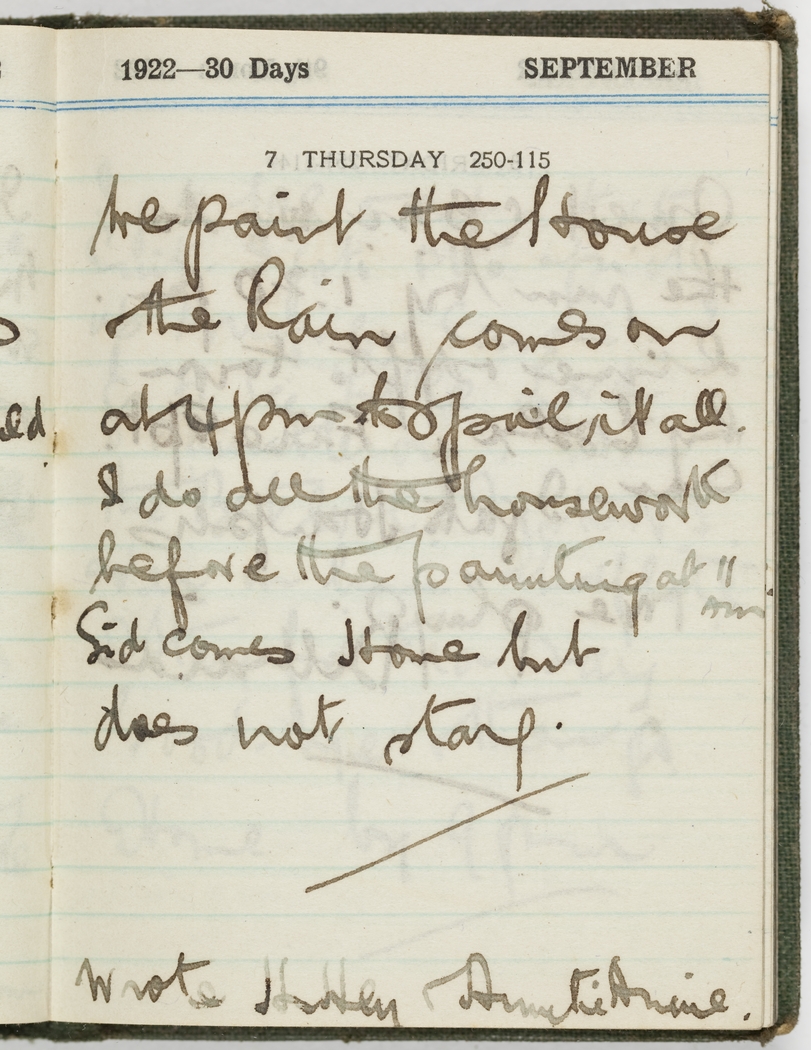 1922—30 Days SEPTEMBER
7 THURSDAY 250-115
We paint the House
the Rain comes on
at 4 pm to spoil it all.
I do all the housework
before the painting at 11
am
Sid comes Home but
does not stay.
Wrote Auntie Annie.